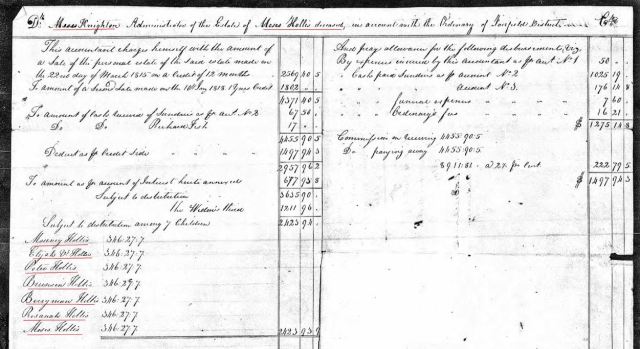 Dr Moses Knighton Administrator of the Estate of Moses Hollis deceased, in account with the Ordinary of Fairfield District Cr
This accountant charges himself with the amount of
a Sale of the personal estate of the said estate made on
the 22nd day of March 1815 on a Credit of 12 months 2569 40 5
To amount of a Second Sale made on the 10th Jany 1818 Credit 1802
4371 40 5
To amount of Cash received of Sundries as pr act No 2 67 50
Do Do Richard 17
4455 90 5
Deduct as pr Credit Side 1497 94 3
2957 96 2
To amount as pr account of Interest hereto annexed 677 93 8
Subject to distribution 3635 90
the Widows third 1211 96
Subject to distribution among 7 Children 2423 94
Hollis 346.27.7
Elijah Hollis 346.27.7
Peter Hollis 346.27.7
Hollis 346.27.7
Berryman Hollis 346.27.7
Rosanah Hollis 346.27.7
Moses Hollis 346.27.7
2423 93 9
And pray allowance for the following disbursements, Viz
By expenses incured by this accountant as pr act No 1 50
Cash paid Sundries as pr account No 2 1025 19
Account No 3. 176 14 8
funeral expenses 7 60
Ordinary's fees 16 21
$ 1275 14 8
Commission on receiving 4455 90.5
Do paying away 4455 90.5
8911:81 a 2½ pr Cent 222 79 5
$ 1497 94 3